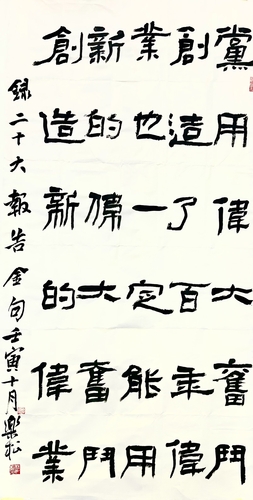 黨用偉大奮鬥
創造了百年偉
業也一定能用
新的偉大奮鬥
創造新的偉業
録二十大報告金句壬寅十月樂松